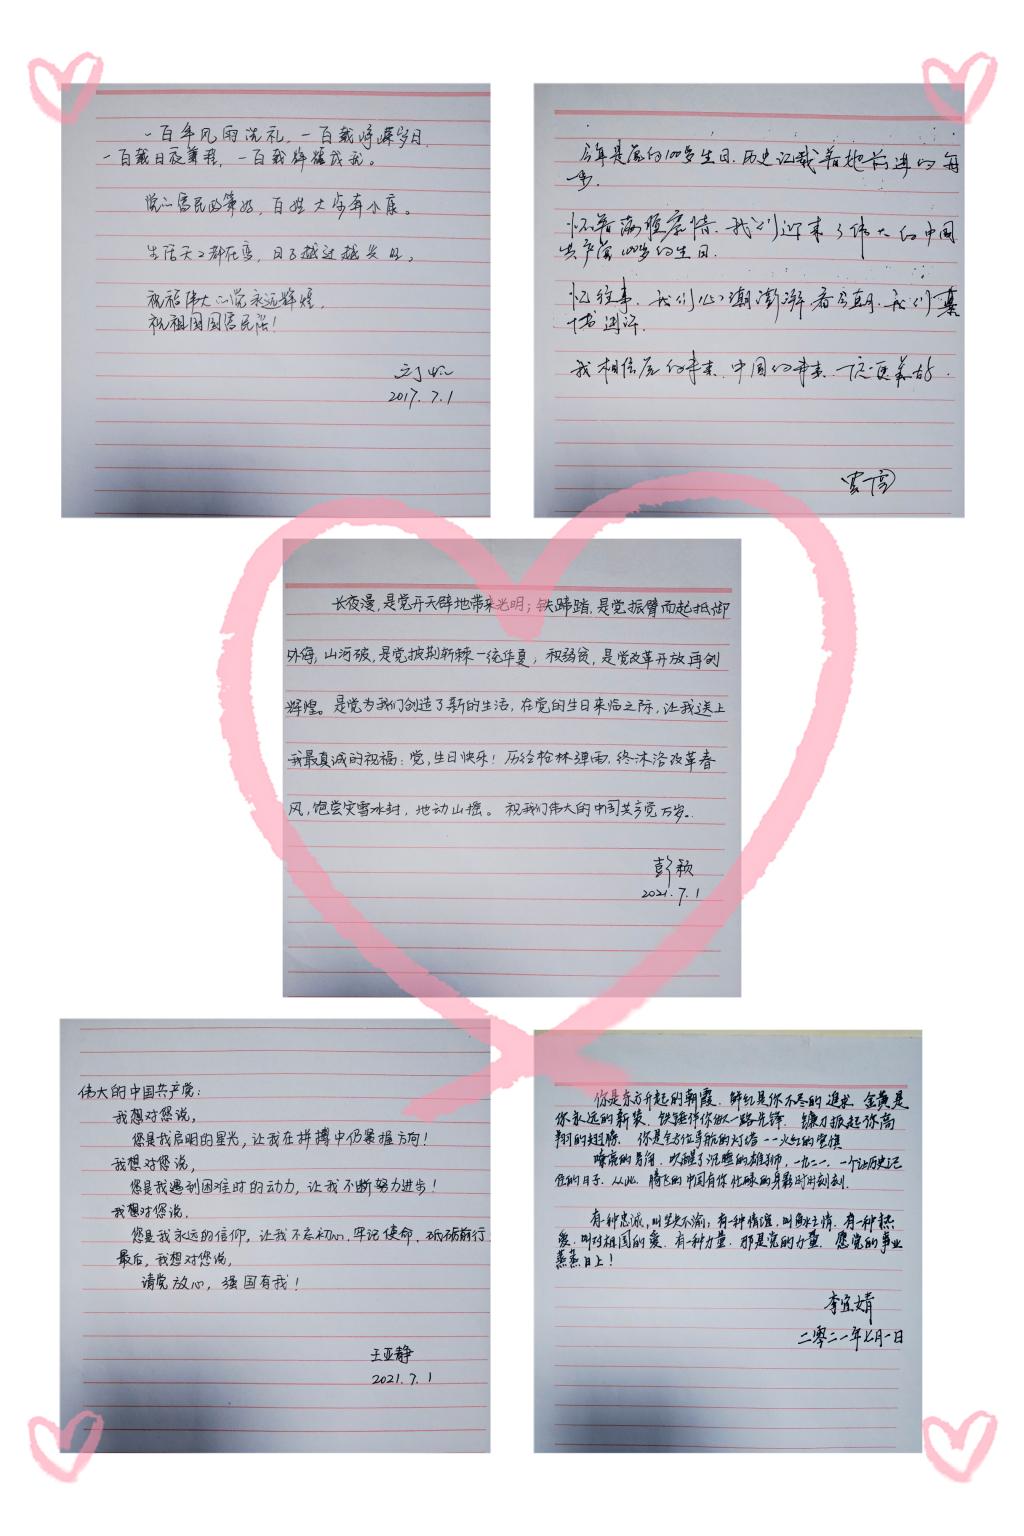 一百年风雨洗礼，一百载峥嵘岁月，
一百载日夜兼程，一百载辉煌成就。
党的富民政策好，百姓大步奔小康。
生活天天都在变，日子越过越长久。
祝福伟大的党永远辉煌，
祝祖国国富民强！
2017.7.1
今年是党的100岁生日。历史记载着她前进的每一步。
怀着满腔豪情，我们迎来了伟大的中国
共产党100岁的生日。
忆往事，我们心潮澎湃看今朝，我们
我相信党的未来，中国的未来，一定更美好。
长夜漫，是党开天辟地带来光明；铁蹄踏，是党振臂而起抵御
外侮，山河破，是党披荆斩棘一统华夏；积弱贫，是党改革开放再创
辉煌。是党为我们创造了新的生活，在党的生日来临之际，让我送上
我最真诚的祝福：党，生日快乐！历经枪林弹雨，终沐浴改革春
风，饱尝灾雪冰封，地动山摇。祝我们伟大的中国共产党万岁。
彭颖
2021.7.1
伟大的中国共产党：
我想对您说，
您是我启明的星光，让我在拼搏中仍要握方向！
我想对您说，
您是我遇到困难时的动力，让我不断努力进步！
我想对您说，
您是我永远的信仰，让我不忘初心，牢记使命，砥砺前行
最后，我想对您说，
请党放心，强国有我！
王亚静
2021.7.1
你是东方升起的朝霞，鲜红是你不尽的追求，金黄是
你永远的新装，铁锤伴你做一路先锋，镰刀振起你高
翔的翅膀。你是全方位导航的灯塔--火红的党旗
嘹亮的号角，吹醒了沉睡的雄狮，一九二一，一个让历史记
住的日子。从此，腾飞的中国有你忙碌的身影时时刻刻。
有一种忠诚，叫坚决不渝；有一种情谊，叫鱼水之情，有一种热
爱，叫对祖国的爱，有一种力量，那是党的力量，愿党的事业
蒸蒸日上！
李宜婧
二零二一年七月一日